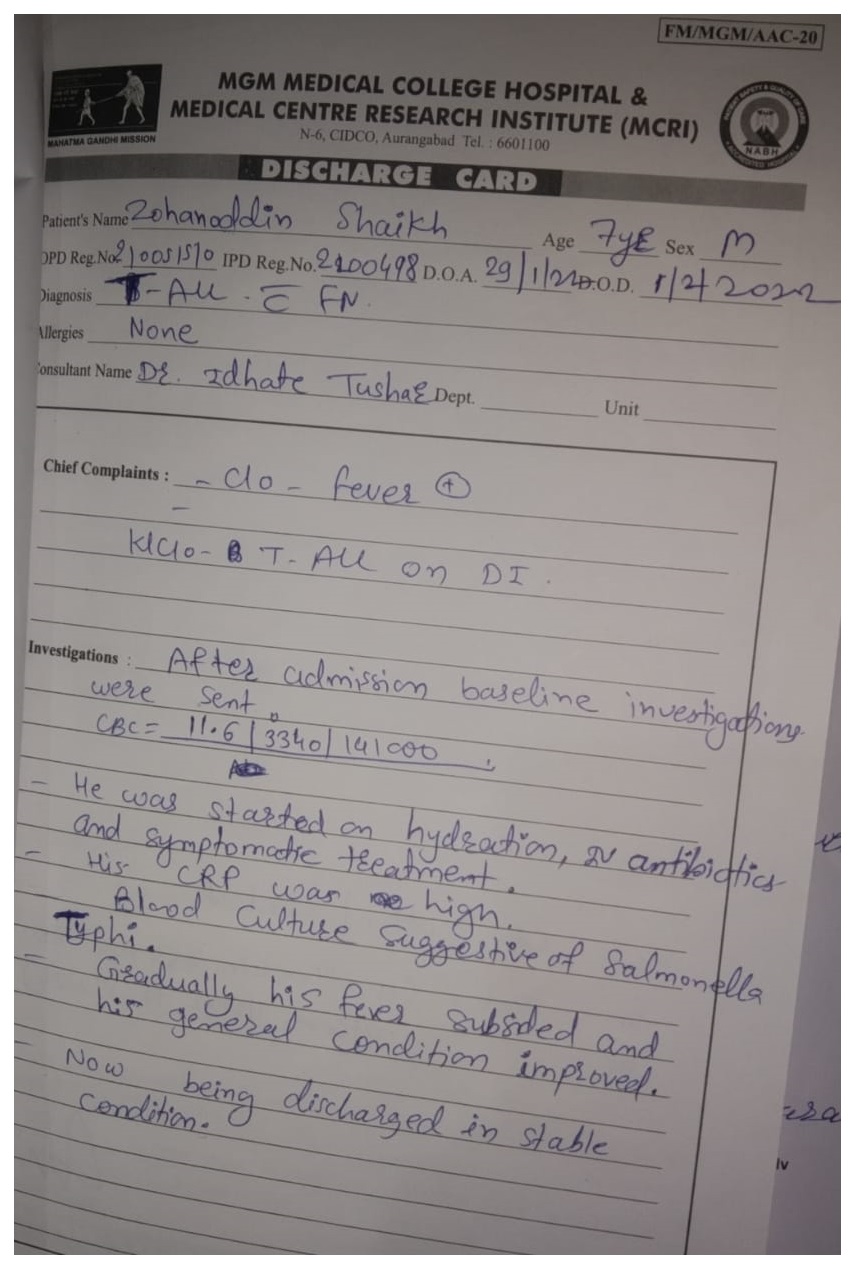 FM/MGM/AAC-20
MGM MEDICAL COLLEGE HOSPITAL &
MEDICAL CENTRE RESEARCH INSTITUTE (MCRI)
N-6, CIDCO, Aurangabad Tel. : 6601100
MAHATMA GANDHI MISSION
NABH
DISCHARGE CARD
Patient's Name Zohanoddin Shaikh Age 7yr Sex M
OPD Reg.No. IPD Reg.No. 2100498 D.O.A. 29/1/22 D.O.D. 1/2/2022
Diagnosis T-ALL . c̄ FN.
Allergies None
Consultant Name Dr. Idhate Tushar Dept. Unit
Chief Complaints : - C/o - fever (+)
-
K/C/o - T-ALL on DI .
Investigations : After admission baseline investigations
were sent.
CBC = 11.6 / 3340 / 141000 .
- He was started on hydration, IV antibiotics
and symptomatic treatment.
- His CRP was high.
Blood Culture Suggestive of Salmonella
Typhi.
- Gradually his fever subsided and
his general condition improved.
- Now being discharged in stable
condition.
iv